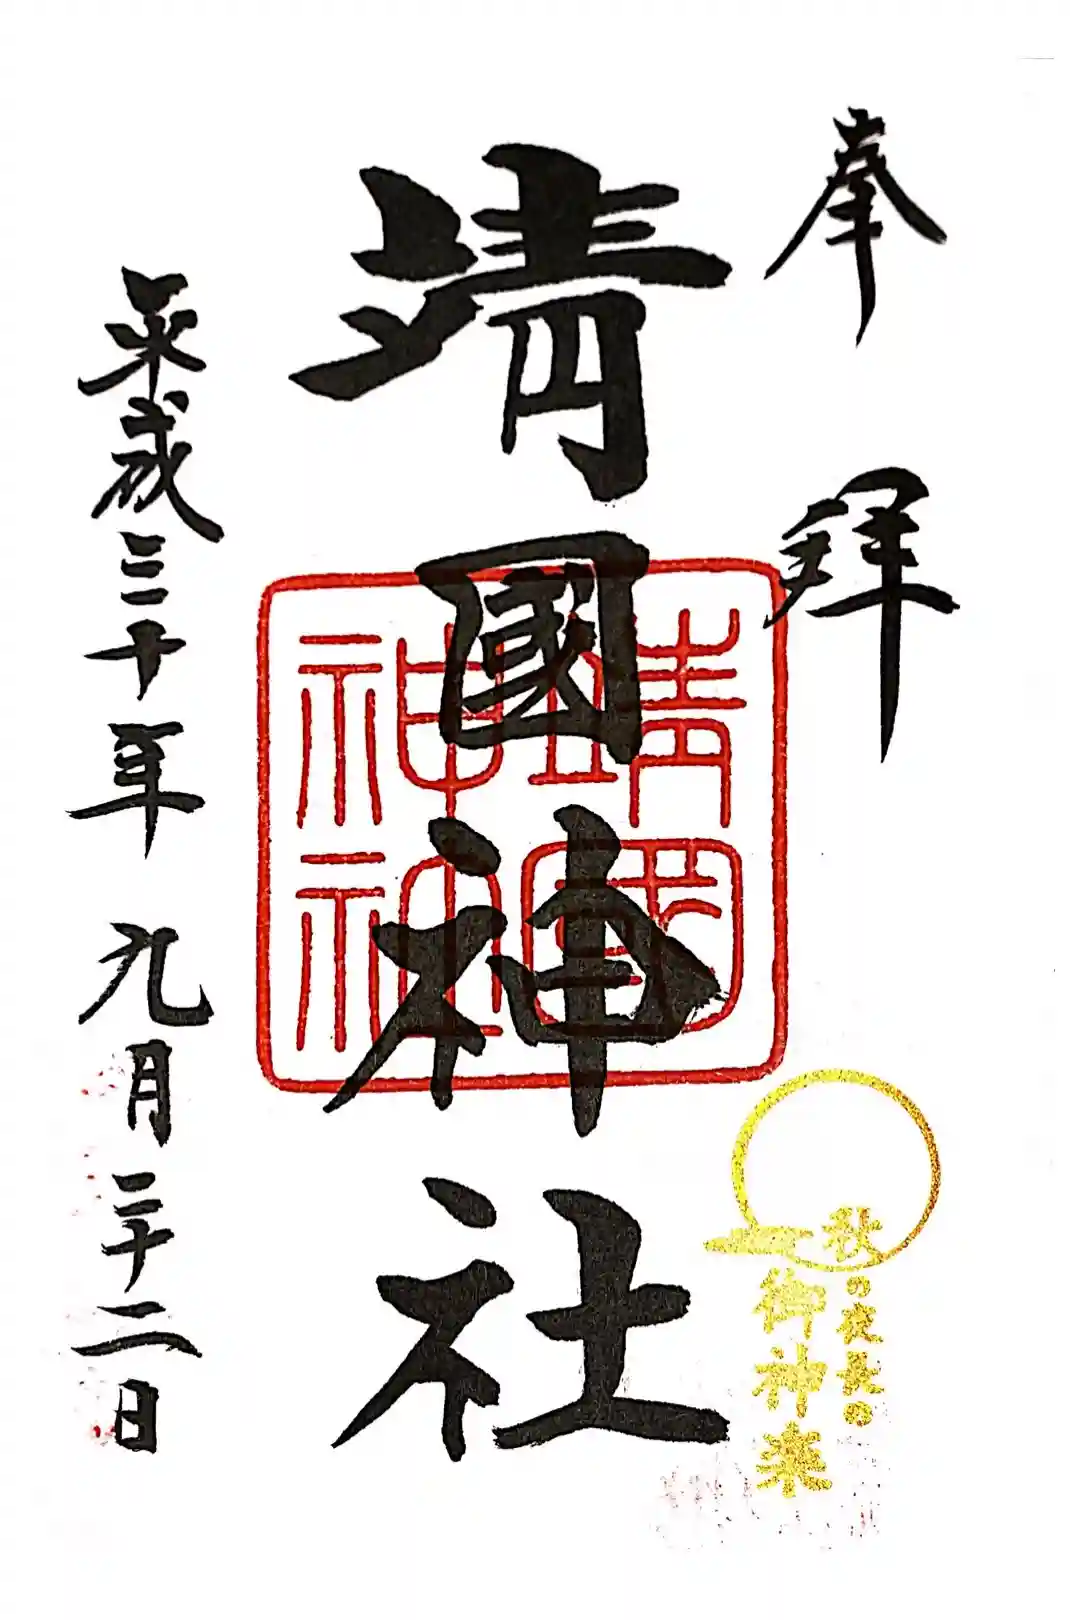 奉拝
靖國神社
靖国神社
平成三十年 九月二十二日
秋の夜長の
御神楽